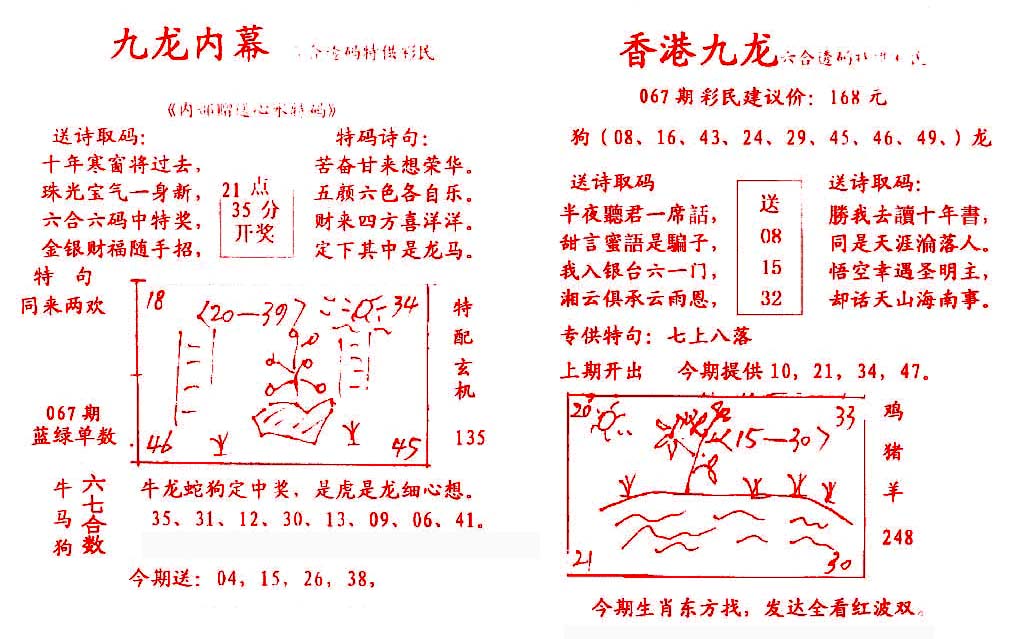 九龙内幕
合透码特供彩民
《内部赠送心水特码》
送诗取码：
十年寒窗将过去，
珠光宝气一身新，
六合六码中特奖，
金银财福随手招，
21 点
35 分
开奖
特码诗句：
苦奋甘来想荣华。
五颜六色各自乐。
财来四方喜洋洋。
定下其中是龙马。
特 句
同来两欢
067 期
蓝绿单数
18
〈20—39〉
34
46
45
特配玄机
135
牛马狗
六七合数
牛龙蛇狗定中奖，是虎是龙细心想。
35、31、12、30、13、09、06、41。
今期送：04，15，26，38，
香港九龙
六合透码
067 期 彩民建议价：168 元
狗（08、16、43、24、29、45、46、49、）龙
送诗取码
半夜聽君一席話，
甜言蜜語是騙子，
我入银台六一门，
湘云俱承云雨恩，
送
08
15
32
送诗取码：
勝我去讀十年書，
同是天涯淪落人。
悟空幸遇圣明主，
却话天山海南事。
专供特句：七上八落
上期开出 今期提供 10，21，34，47。
20
33
〈15—30〉
21
30
鸡猪羊
248
今期生肖东方找，发达全看红波双。